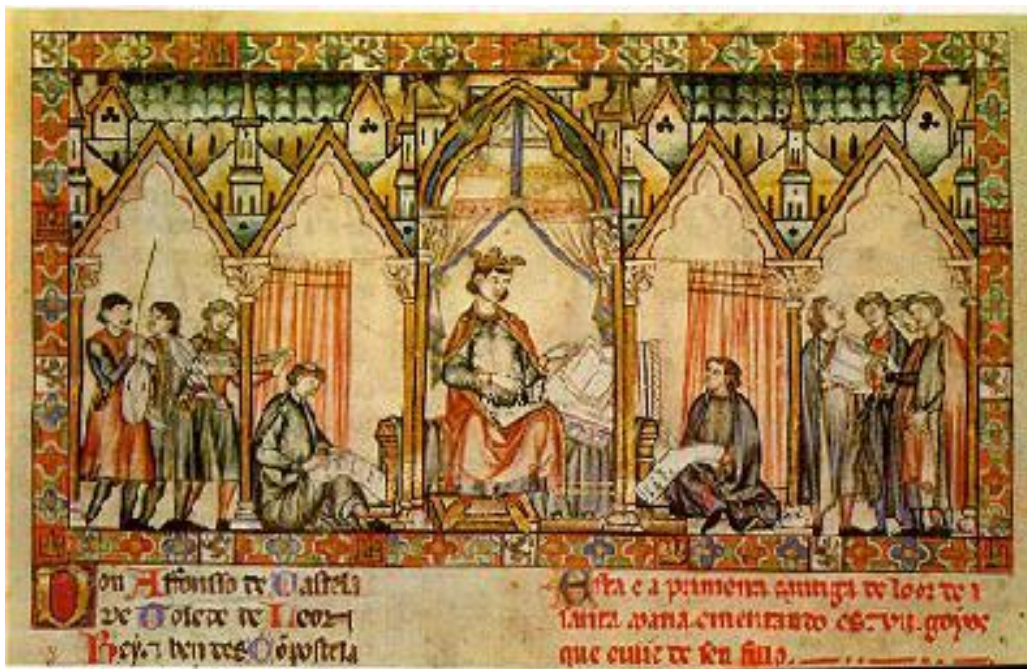 Don Affonsso de Castela
de Toledo de Leon
Rey e ben des Conpostela
Esta e a primeira cantiga de loor de
santa maria ementando os .VII. goyos
que ouue de seu fillo.